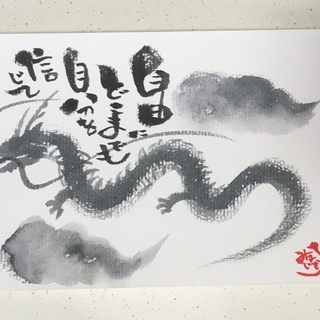 自由に
どこまでも
自分を
信じて